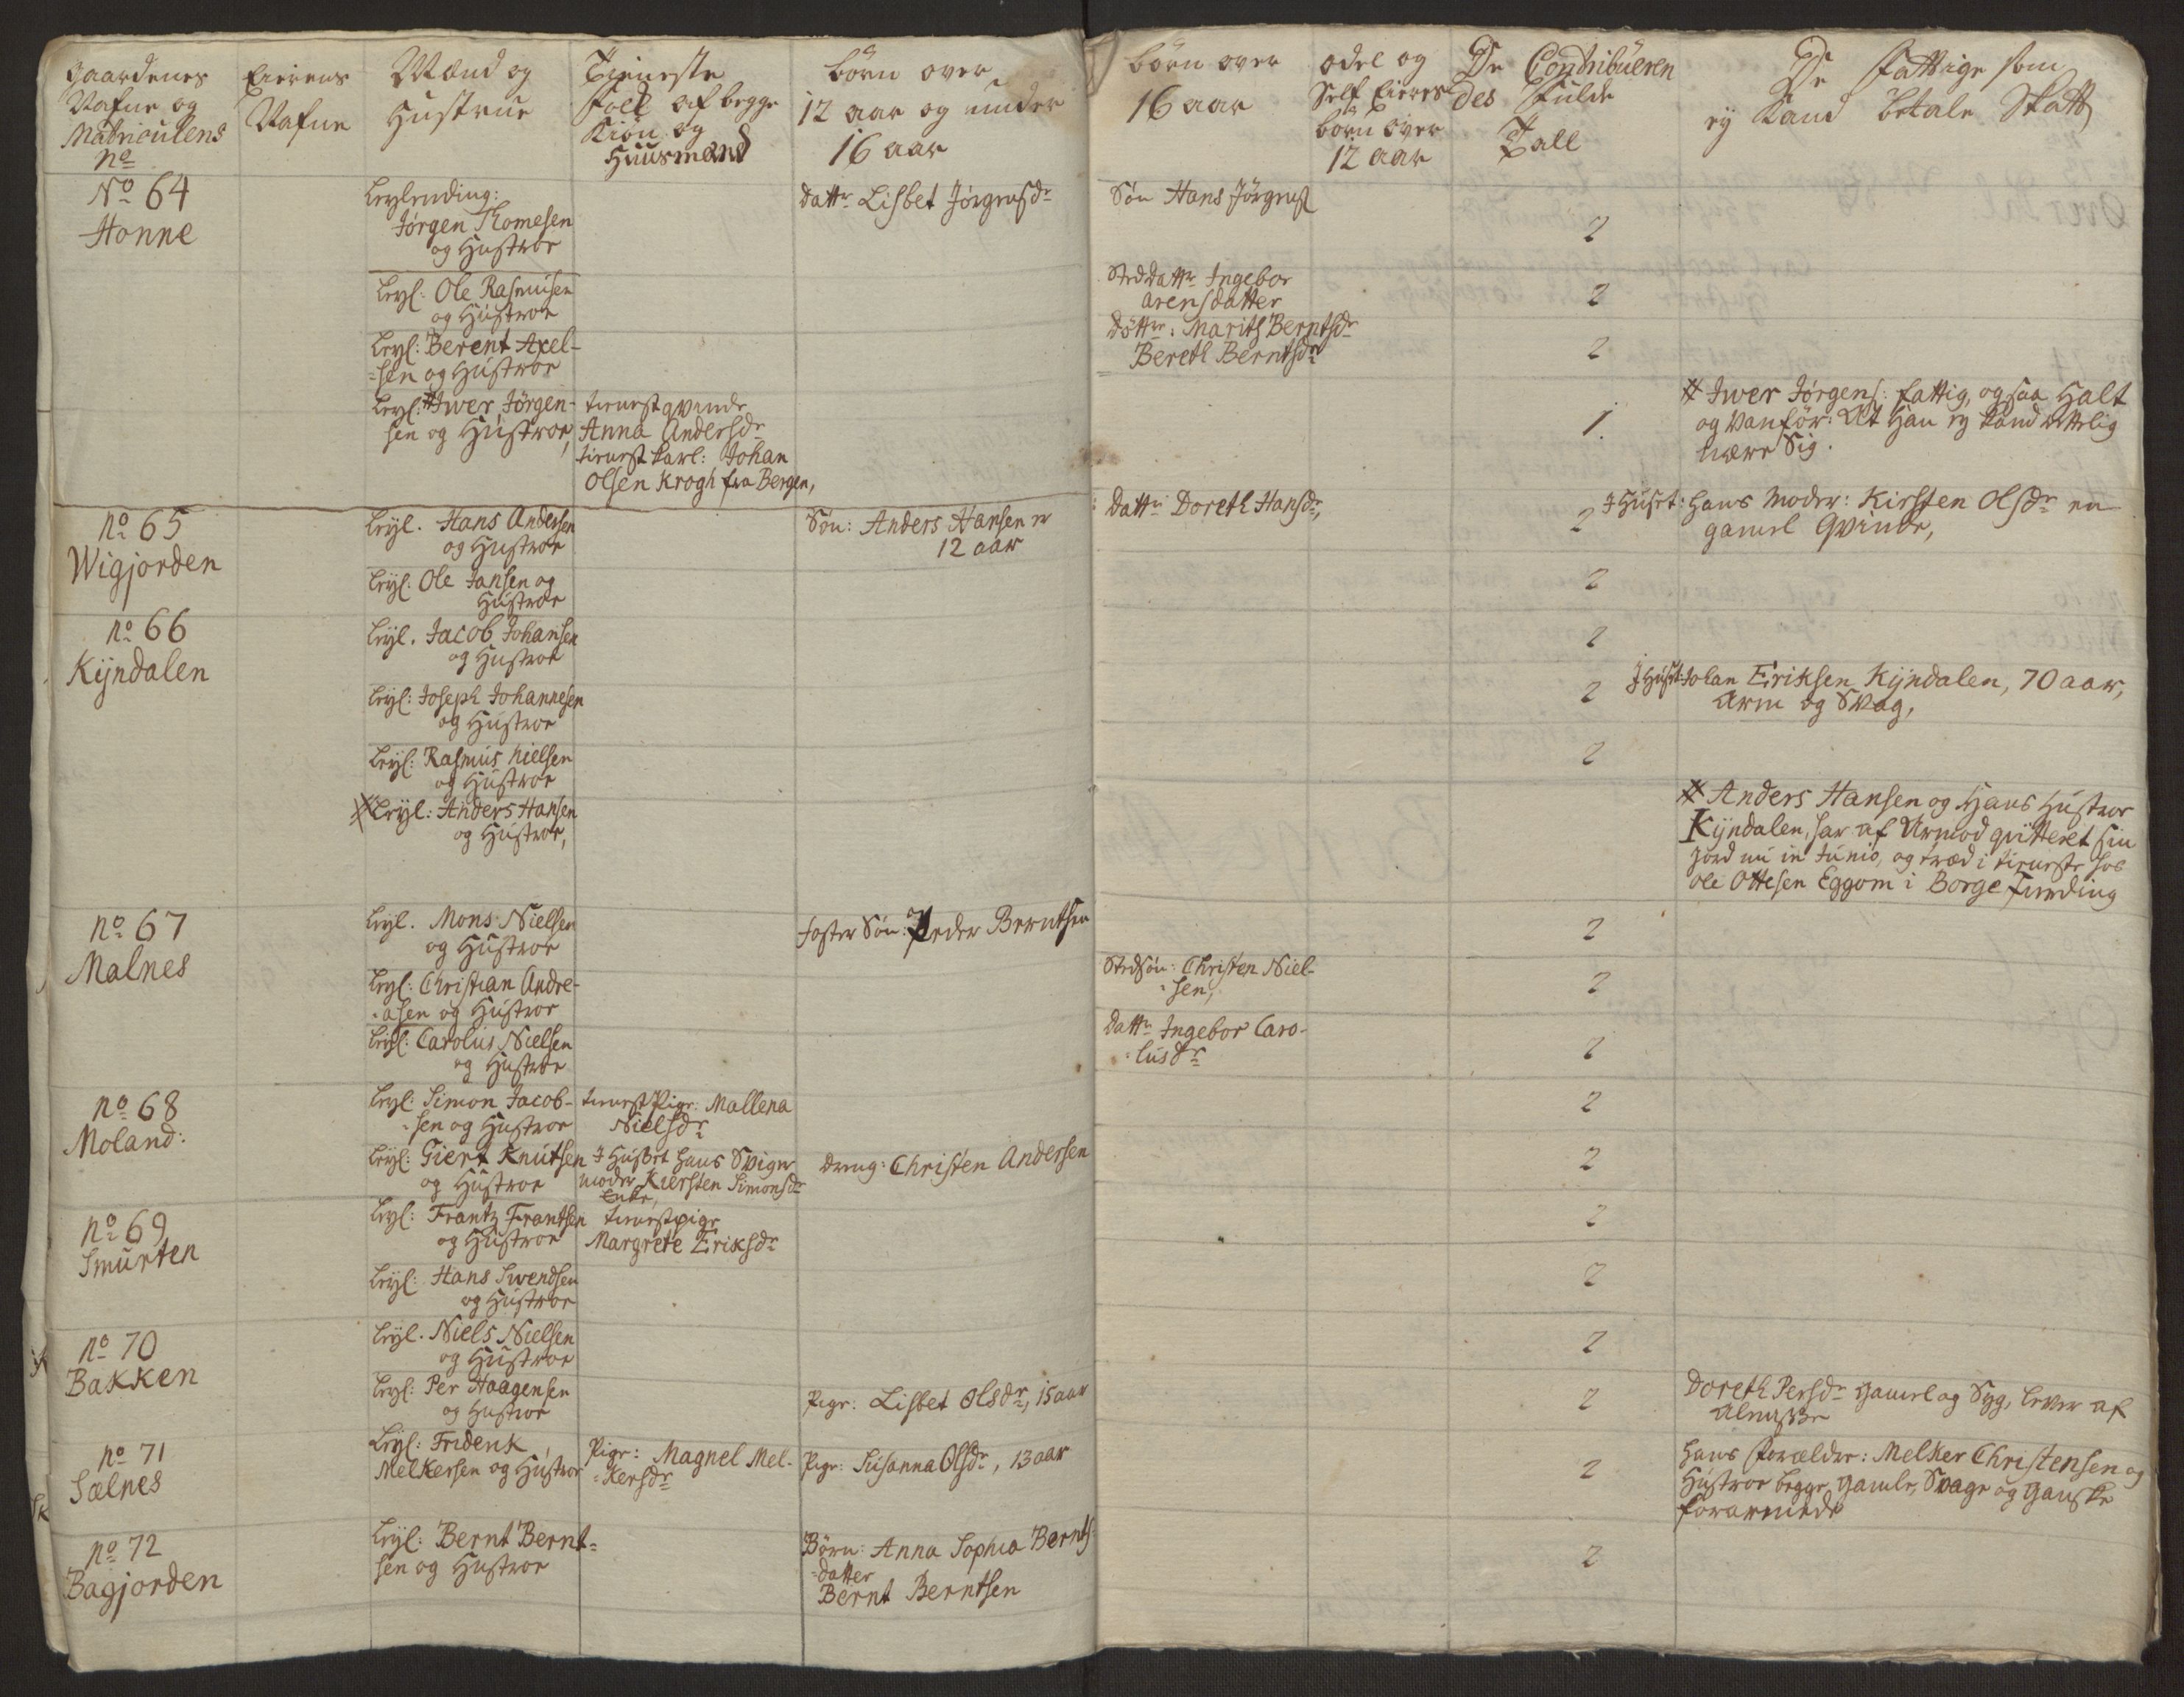 Gaardenes
Nafne og
Matriculens
No
Eierens
Nafne
Mænd og
Hustrue
Tieneste
Folk af begge
Kiøn og
Huusmænd
børn over
12 aar og under
16 aar
børn over
16 aar
odel og
Self Eieres
børn over
12 aar
De Contribueren
des Fulde
Tall
De Fattige som
ey kand betale Skatt
No 64
Honne
Leylending:
Jørgen Thomesen
og Hustroe
dattr Lisbet Jørgensdr
Søn Hans Jørgens
2
Leyl: Ole Rasmusen
og Hustroe
Steddattr Ingebor
arensdatter
2
Leyl: Berent Axel-
-sen og Hustroe
døttr: Marith Berntsdr
Bereth Berntsdr
2
Leyl: # Iwer Jörgen-
sen og Hustroe,
tienestqvinde
Anna Andersdr
tienest karl: Johan
Olsen Krogh fra Bergen,
1.
# Iwer Jørgens: fattig, ogsaa Halt
og Vanför. At Han ey kand rettelig
nære Sig.
No 65
Wigjorden
Leyl. Hans Andersen
og Hustroe
Søn: Anders Hansen er
12 aar
Dattr Doreth Hansdr,
2
J Huset: hans Moder: Kirsten Olsdr en
gamel Qvinde,
Leyl: Ole Jansen og
Hustroe
2
No 66
Kÿndalen
Leyl. Jacob Johansen
og Hustroe
2
Leyl: Joseph Johannesen
og Hustroe
2
J Huset: Johan Eriksen Kÿndalen, 70 aar,
Arm og Svag,
Leyl: Rasmus Nielsen
og Hustroe
2
# Leyl: Anders Hansen
og Hustroe,
# Anders Hansen og Hans Hustroe
Kÿndalen, har af Armod qvitteret sin
Jord nu in Junio, og træd i tieneste hos
Ole Ottesen Eggom i Borge Finding
No 67
Malnes
Leyl. Mons Nielsen
og Hustroe
foster Søn: Peder Berntsen
2
Leyl: Christian Andre-
-asen og Hustroe
Stedsön: Christen Niel-
-sen,
2
Leyl: Carolus Nielsen
og Hustroe
dattr Ingebor Caro-
-lusdr
2
No 68
Moland:
Leyl: Simon Jacob-
-sen og Hustroe
tienest Pige: Mallena
Nielsdr
2
Leyl: Giert Knutsen
og Hustroe
J Huset hans Sviger
moder Kiersten Simonsdr
Enke,
dreng: Christen Andersen
2
No 69
Smurten
Leyl: Frantz Frantsen
og Hustroe
tienestpige
Margrete Eriksdr
2
Leyl: Hans Svendsen
og Hustroe
2
No 70
Bakken
Leyl. Niels Nielsen
og Hustroe
2
Leyl: Per Haagensen
og Hustroe
Pige: Lisbet Olsdr, 15 aar
2
Doreth Persdr gamel og Syg, lever af
Almisse
No 71
Sælnes
Leyl: Friderik
Melkersen og Hustroe
Pige: Magnel Mel-
-kersdr
Pige: Susanna Olsdr, 13 aar
2
hans Forældre: Melker Christensen og
Hustroe begge gamle, Svage og ganske
forarmede
No 72
Bagjorden
Leyl: Bernt Bernt-
sen og Hustroe
Börn: Anna Sophia Bernts-
-datter
Bernt Berntsen
2